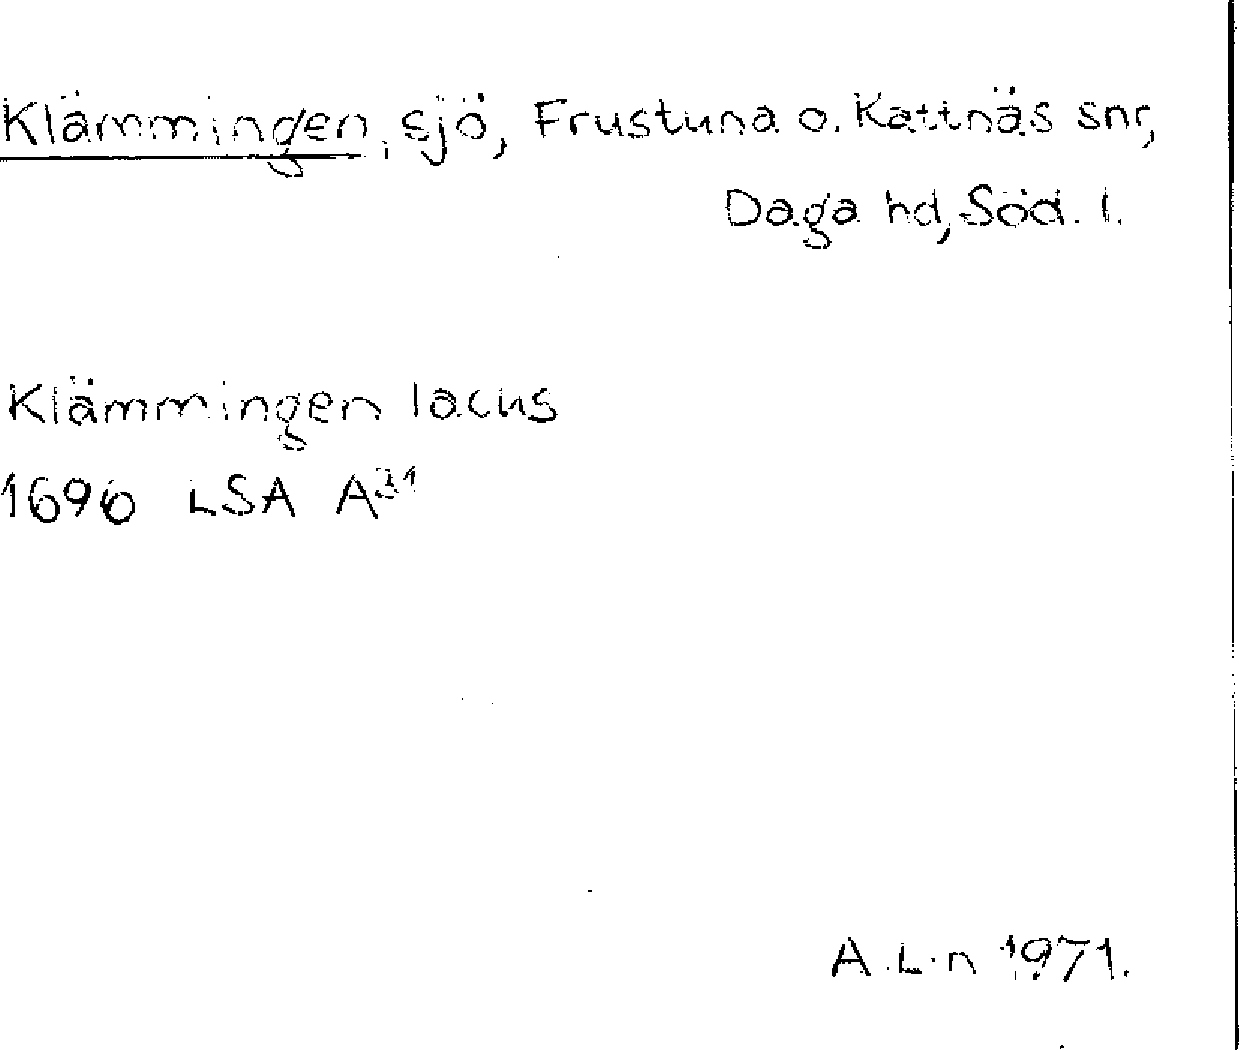 Klämmingen, sjö, Frustuna o. Kattnäs snr,
Daga hd, Söd. l.
Klämmingen lacus
1696 LSA A31
A.L-n 1971.